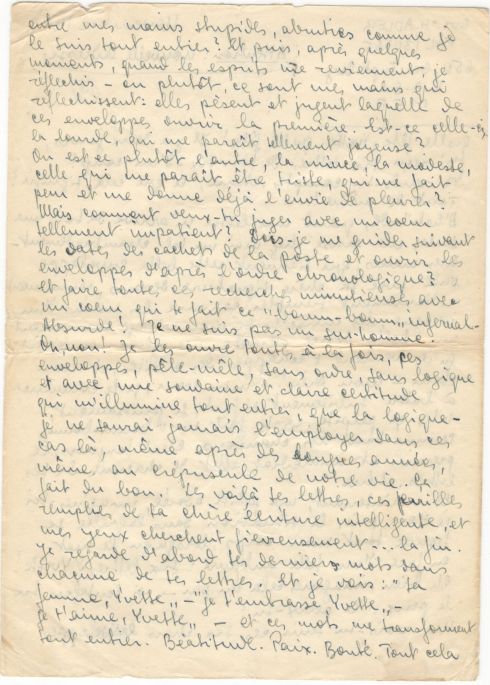 entre mes mains stupides, abruties comme je
le suis tout entier? Et puis, après quelques
moments, quand les esprits me reviennent, je
réflechis – ou plutôt, ce sont mes mains qui
réflechissent: elles pèsent et jugent laquelle de
ces enveloppes ouvrir la première. Est-ce celle-ci,
la lourde, qui me paraît tellement joyeuse?
Ou est ce plutôt l'autre, la mince, la modeste,
celle qui me paraît être triste, qui me fait
peur et me donne déjà l'envie de pleurer?
Mais comment veux-tu juger avec un coeur
tellement impatient? Dois-je me guider suivant
les dates des cachets de la poste et ouvrir les
enveloppes d'après l'ordre chronologique?
et faire toutes ces recherches minutieuses avec
un coeur qui te fait ce "boum-boum" infernal.
Absurde! Je ne suis pas un sur-homme.
Oh, non! Je les ouvre toutes à la fois, ces
enveloppes, pêle-mêle, sans ordre, sans logique
et avec une soudaine et claire certitude
qui m'illumine tout entier, que la logique –
je ne saurai jamais l'employer dans ces
cas là, même après des longues années,
même au crépuscule de notre vie. Ça
fait du bon. Les voilà tes lettres, ces feuilles
remplies de ta chère écriture intelligente, et
mes yeux cherchent fiévreusement... la fin.
Je regarde d'abord tes derniers mots dans
chacune de tes lettres. Et je vois: "ta
femme, Yvette" – "je t'embrasse, Yvette" –
je t'aime, Yvette" – et ces mots me transforment
tout entier. Béatitude. Paix. Bonté. Tout cela